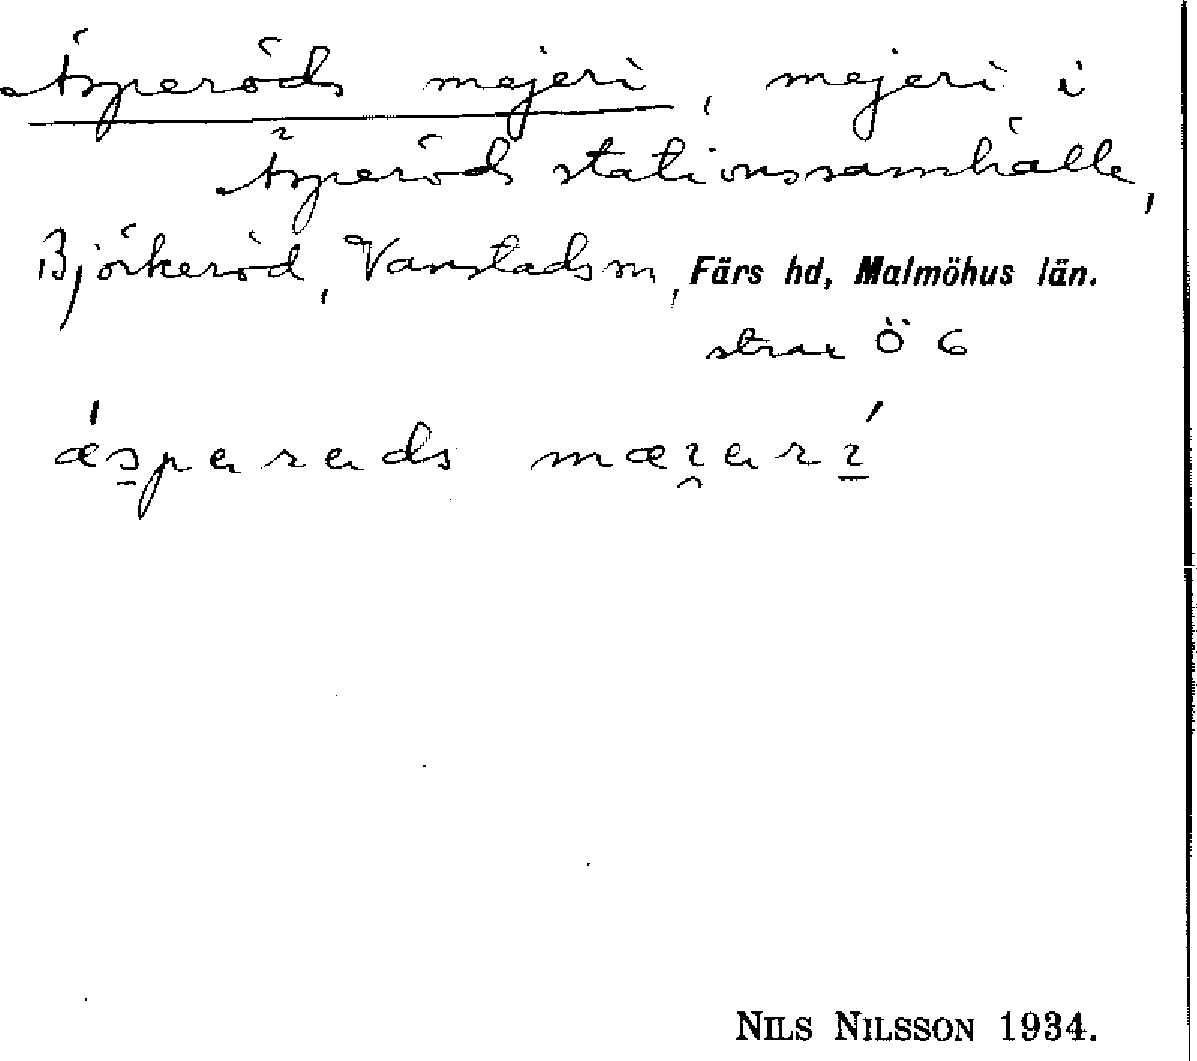 Äsperöds mejeri, mejeri i
Äsperöds stationssamhälle,
Björkeröd, Vanstads sn, Färs hd, Malmöhus län.
strax Ö 6
ǽspɐrɐds mæɪ̯ɐrɪ́
NILS NILSSON 1934.